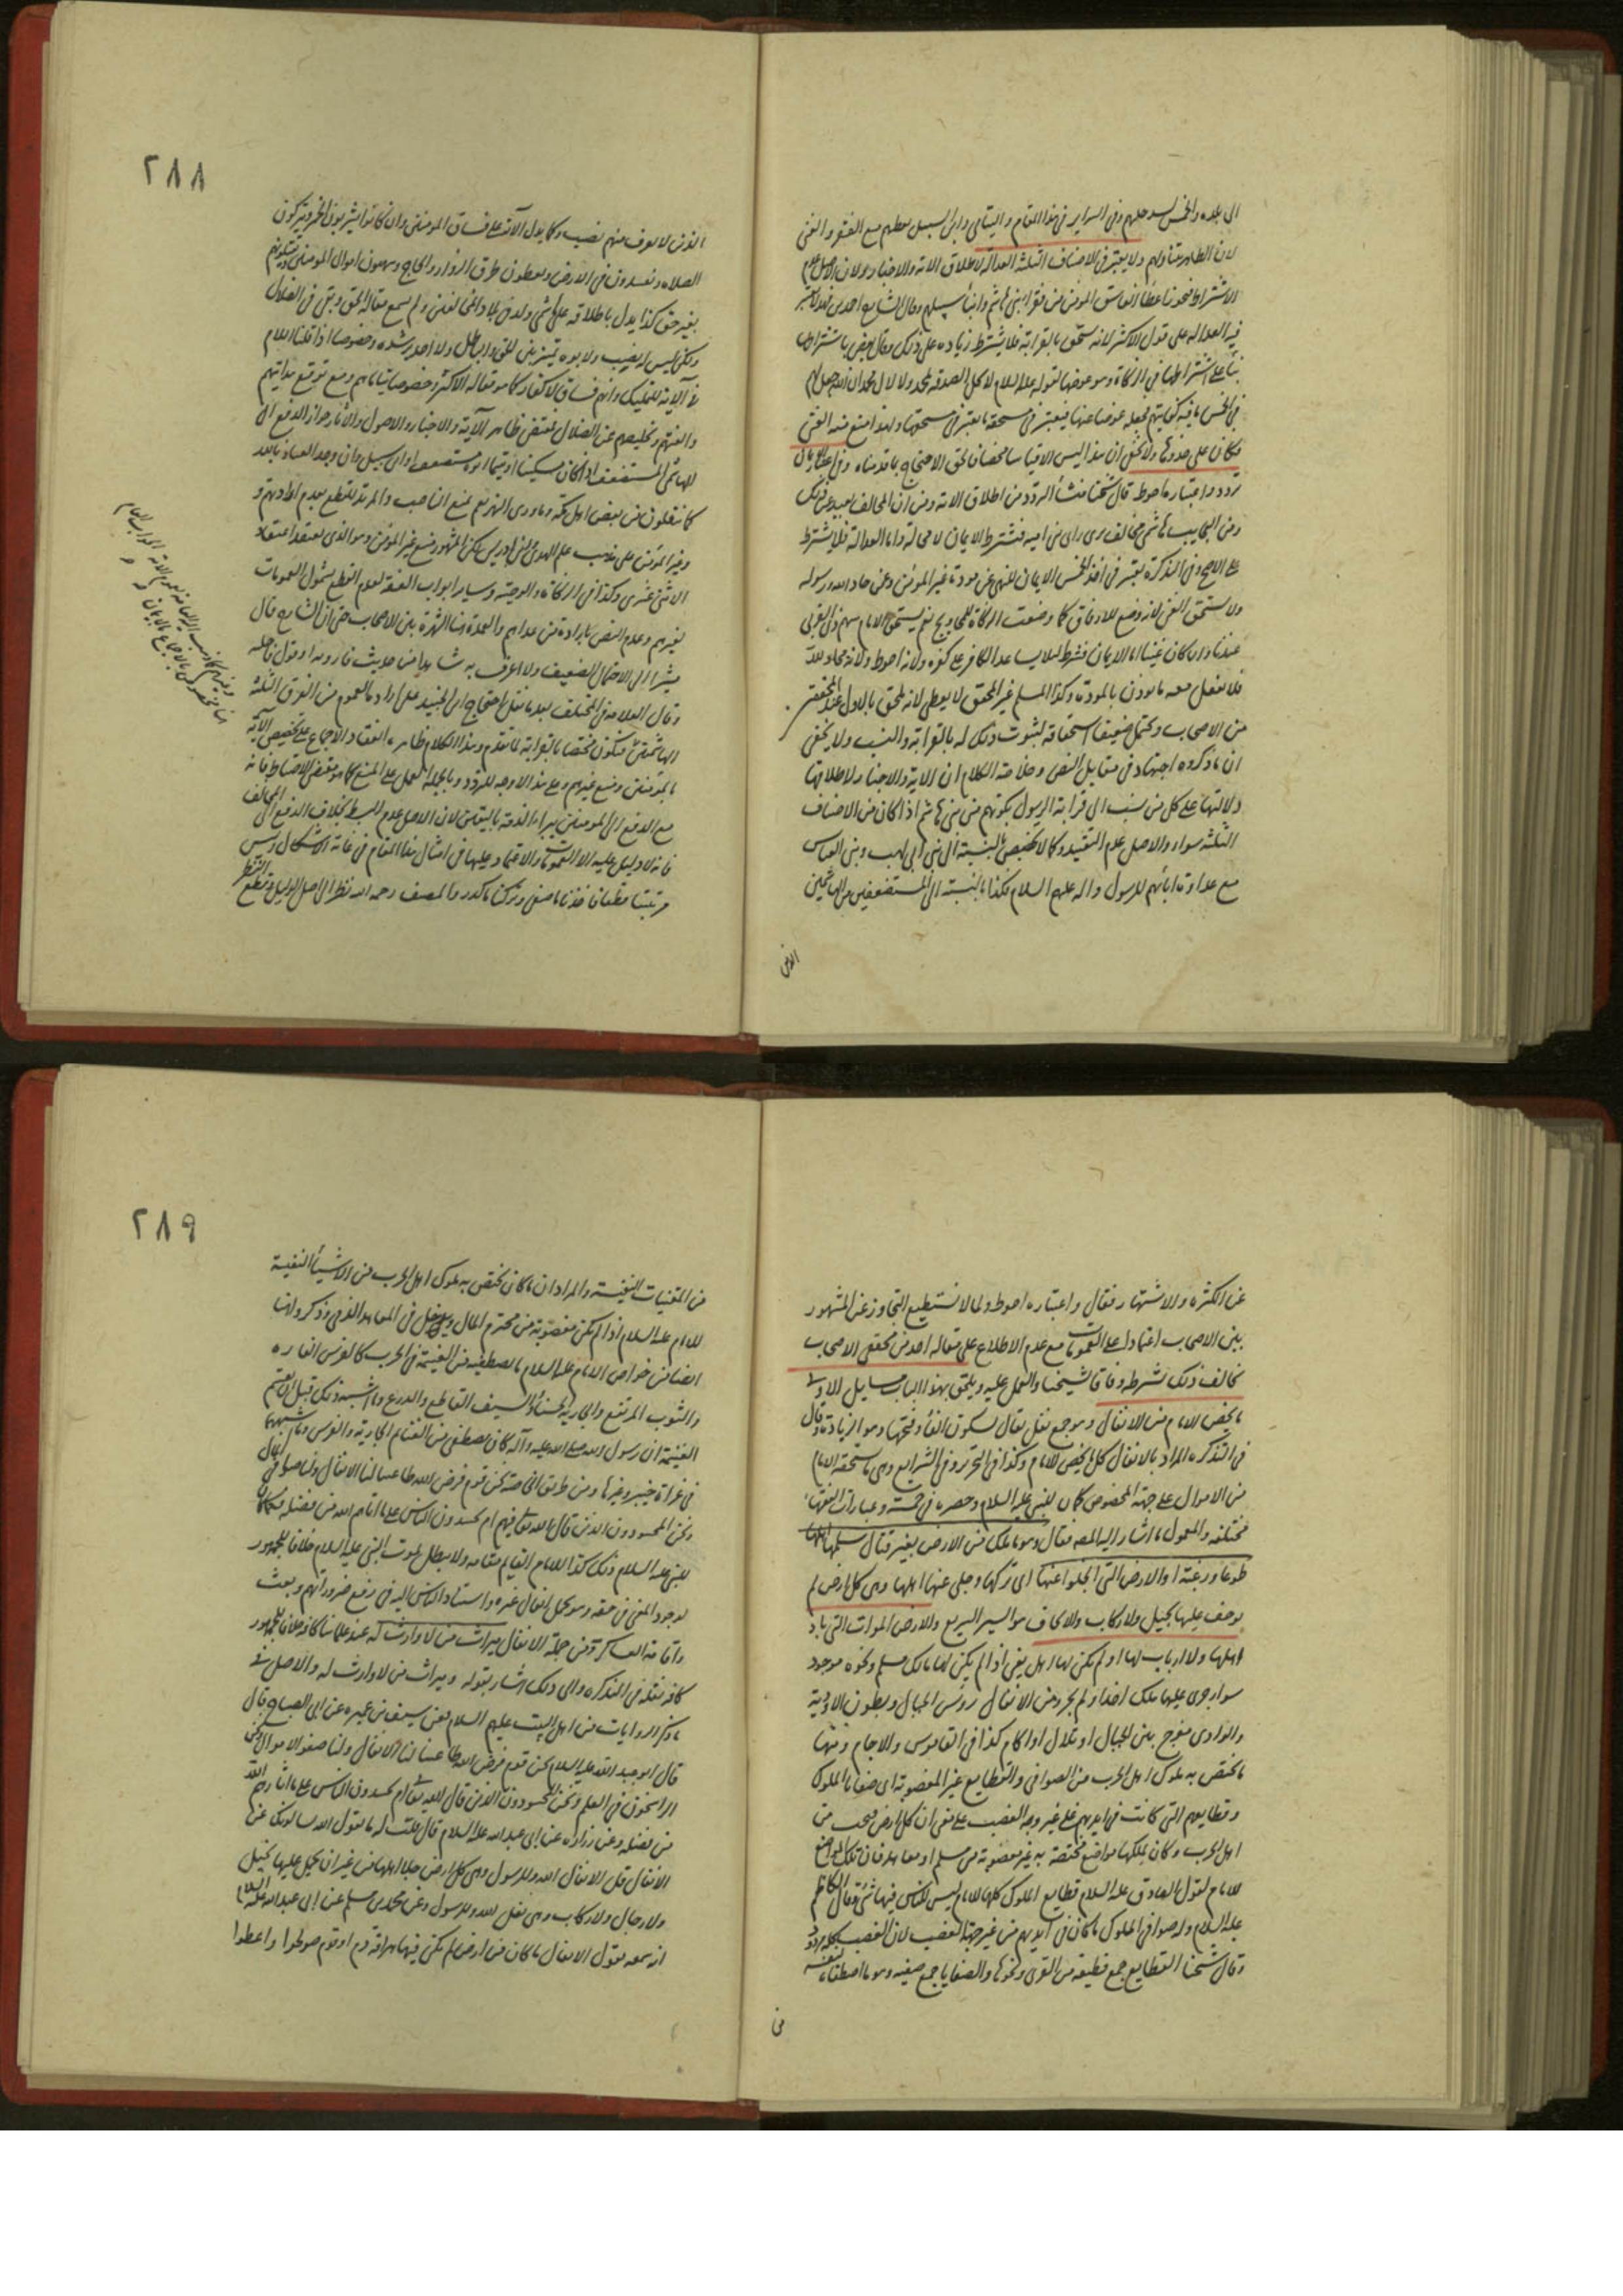 الى بلده والخمس لسد خلتهم وفى السراير فى هذا المقام واليتامى وابن السبيل يعطيهم مع الفقر والغنى
لان الظاهر يتناولهم ولا يعتبر فى الاصناف الثلثة العدالة لاطلاق الاية والاخبار ولان الاصل عدم
الاشتراط فيجوز اعطاء الفاسق المؤمن من فقراء بنى هاشم
فيه العدالة على قول الاكثر لانه يستحق بالقرابة فلا يشترط زيادة على ذلك وقال بعض باشتراطها
بناء على اشتراطها فى الزكاة وهو عوضها لقوله عليه السلام لا تحل الصدقة لمحمد ولا لال محمد ان الله جعل لهم
فى الخمس ما فيه كفايتهم فجعله عوضا عنها فيعتبر فى مستحقه ما يعتبر فى مستحقها ولهذا منع منه الغنى
فكان على حذوها ولا يخفى ان هذا ليس الا قياسا محضا فالحق الاحتجاج بما قدمناه وفى اعتبار الايمان
تردد واعتباره احوط قال شيخنا منشأ التردد من اطلاق الاية ومن ان المخالف بعيد عن ذلك
ومن العجايب هاشمى مخالف يرى راى بنى امية فيشترط الايمان لا محالة واما العدالة فلا يشترط
على الاصح وفى التذكرة يعتبر فى اخذ الخمس الايمان للنهى عن مودة غير المؤمن وعن حاد الله ورسوله
ولا يستحق الغنى لانه وضع للارفاق كما وضعت الزكاة للمحاويج نعم يستحق الامام سهم ذى القربى
عندنا وان كان غنيا اما الايمان فشرط لئلا يساعد الكافر على كفره ولانه احوط ولانه محاد لله
فلا يفعل معه ما يؤذن بالمودة وكذا المسلم غير المحق لا يعطى لانه يلحق بالاول عند المحققين
من الاصحاب ويحتمل ضعيفا استحقاقه لثبوت ذلك له بالقرابة والنسب ولا يخفى
ان ما ذكروه اجتهاد فى مقابل النص وخلاصة الكلام ان الاية والاخبار لاطلاقها
دلالتها على كل من نسب الى قرابة الرسول بكونهم من بنى هاشم اذا كان من الاصناف
الثلثة سواء والاصل عدم التقييد وكما لا تخصيص بالنسبة الى بنى ابى لهب وبنى العباس
مع عداوة ابائهم للرسول واله عليهم السلام فكذا بالنسبة الى المستضعفين من الهاشميين
الذين
٢٨٨
الذين لا يعرف منهم نصب وكما يدل الآية على فساق المؤمنين وان كانوا يشربون الخمر ويتركون
الصلاة ويفسدون فى الارض ويقطعون طرق الزوار والحاج وينهبون اموال المؤمنين
بغير حق كذا يدل باطلاقه على هاشمى ولد فى بلاد المخالفين ولم يسمع مقالة الحق وبقى فى الضلال
ولكن ليس له نصب ولا بوه تميز بين الحق والباطل ولا احد يرشده وخصوصا اذا قلنا اللام
فى الآية للتمليك وانهم فساق لا كفار كما هو مقالة الاكثر وخصوصا يتاماهم ومع توقع هدايتهم
والفتهم وتخليصهم عن الضلال فمقتضى ظاهر الآية والاخبار والاصول والآثار جواز الدفع الى
الهاشمى المستضعف اذا كان مسكينا او يتيما او ابن سبيل وان وجد العباد بالله
كما ينقلون عن بعض اهل مكة وما وردى النهر نعم يمنع الناصب والمرتد للقطع بعدم ارادتهم
وغير المؤمن على مذهب علم الهدى وابن ادريس لكن المشهور منع غير المؤمن وهو الذى يعتقد اعتقاد
الاثنى عشرى وكذا فى الزكاة والوصية وساير ابواب الفقه لعدم القطع بشمول العمومات
لغيرهم وعدم النص بارادة من عداهم والعمدة هنا الشهرة بين الاصحاب حتى ان الشارع قال
مشيرا الى الاحتمال الضعيف ولا اعرف به شاهدا من حديث
وقال العلامة فى المختلف بعد ما نقل احتجاج ابن الجنيد على ارادة العموم من الفرق الثلثة
الهاشميين فيكون مختصا بالقرابة لما تقدم وهذا الكلام ظاهره انعقاد الاجماع على تخصيص الآية
بالمؤمنين ومنع غيرهم وعلى هذا لا وجه للتردد وبالجملة العمل على المنع كما هو مقتضى الاحتياط فانه
مع الدفع الى المؤمنين يبراء الذمة باليقين لان الاصل عدم البسط بخلاف الدفع الى المخالف
فانه لا دليل عليه الا العمومات والاعتماد عليها فى امثال هذا المقام فى غاية الاشكال وليس
مرتبتنا فخذ ما صفى وترك ما كدر والمصنف رحمه الله نظر الى اصل الدليل وقطع النظر
عن الكثرة والاشتهار فقال واعتباره احوط ولما لا نستطيع التجاوز عن المشهور
بين الاصحاب اعتمادا على العمومات مع عدم الاطلاع على مقالة احد من محققى الاصحاب
يخالف ذلك نشترطه وفاقا لشيخنا والعمل عليه ويلحق بهذا الباب مسايل الاولى
ما يخص الامام من الانفال وهو جمع نفل يقال بسكون الفاء وفتحها وهو الزيادة وقال
فى التذكرة المراد بالانفال كل ما يخص الامام وكذا فى التحرير وفى الشرايع وهى ما يستحقه الامام
من الاموال على جهة الخصوص كما كان للنبى عليه السلام وحصره فى خمسة وعبارات الفقهاء
مختلفة والمعمول ما اشار اليه المصنف فقال وهو ما يملك من الارض بغير قتال سلمها اهلها
طوعا ورغبة او الارض التى انجلوا عنها اى تركها وجلى عنها اهلها وهى كل ارض لم
يوجف عليها بخيل ولا ركاب والايجاف هو السير السريع والارض الموات التى باد
اهلها ولا ارباب لها او لم يكن لها اهل يعنى اذا لم يكن لها مالك مسلم ونحوه موجود
سواء جرى عليها ملك احد او لم يجر ومن الانفال رؤس الجبال وبطون الاودية
والوادى مفرج بين الجبال او تلال او اكام كذا فى القاموس والاجام ومنها
ما يختص به ملوك اهل الحرب من الصوافى والقطايع غير المغصوبة اى صفايا الملوك
وقطايعهم التى كانت فى ايديهم على غير وجه الغصب على معنى ان كل ارض فتحت من
اهل الحرب وكان لملكها مواضع مختصة به غير مغصوبة من مسلم او معاهد فان تلك المواضع
للامام لقول الصادق عليه السلام قطايع الملوك كلها للامام ليس للناس فيها شئ وقال الكاظم
عليه السلام وله صوافى الملوك ما كان فى ايديهم من غير جهة الغصب لان الغصب كله مردود
وقال شيخنا القطايع جمع قطيعة من القرى ونحوها والصفايا جمع صفية وهو ما اصطفاه لنفسه
من
٢٨٩
من المقنيات النفيسة والمراد ان ما كان يختص به ملوك اهل الحرب من الاشياء النفيسة
للامام عليه السلام اذا لم يكن مغصوبة من محترم المال ويدخل فى المعاهد الذمى وذكر وانها
ايضا من خواص الامام عليه السلام ما يصطفيه من الغنيمة فى الحرب كالفرس الفاره
والثوب المرتفع والجارية الحسناء والسيف القاطع والدرع وما اشبه ذلك قبل ان يقسم
الغنيمة ان رسول الله صلى الله عليه وآله كان يصطفى من الغنائم الجارية والفرس وما اشبههما
فى غزاة خيبر وغيرها ومن طريق الخاصة نحن قوم فرض الله طاعتنا لنا الانفال ولنا صفو المال
ونحن المحسودون الذين قال الله تعالى فيهم ام يحسدون الناس على ما اتاهم الله من فضله فكما كان
للنبى عليه السلام ذلك كذا للامام القايم مقامه ولا يبطل بموت النبى عليه السلام خلافا للجمهور
لوجود المعنى فى حقه وهو تحمل اثقال غيره واستناد الناس اليه فى رفع ضروراتهم وبعث
واقامة العساكر ومن جملة الانفال ميراث من لا وارث له عند علمائنا كافة خلافا للجمهور
كافة نقله فى التذكرة والى ذلك اشار بقوله وميراث من لا وارث له والاصل فى
ما ذكر الروايات من اهل البيت عليهم السلام فعن سيف بن عميرة عن ابى الصباح قال
قال ابو عبد الله عليه السلام نحن قوم فرض الله طاعتنا لنا الانفال ولنا صفو الاموال ونحن
الراسخون فى العلم ونحن المحسودون الذين قال الله تعالى ام يحسدون الناس على ما اتاهم الله
من فضله وعن زرارة عن ابى عبد الله عليه السلام قال قلت له ما يقول الله يسالونك عن
الانفال قل الانفال لله وللرسول وهى كل ارض جلا اهلها من غير ان يحمل عليها بخيل
ولا رجال ولا ركاب وهى نفل لله وللرسول وعن محمد بن مسلم عن ابى عبد الله عليه السلام
انه سمعه يقول الانفال ما كان من ارض لم يكن فيها هراقة دم او قوم صولحوا واعطوا